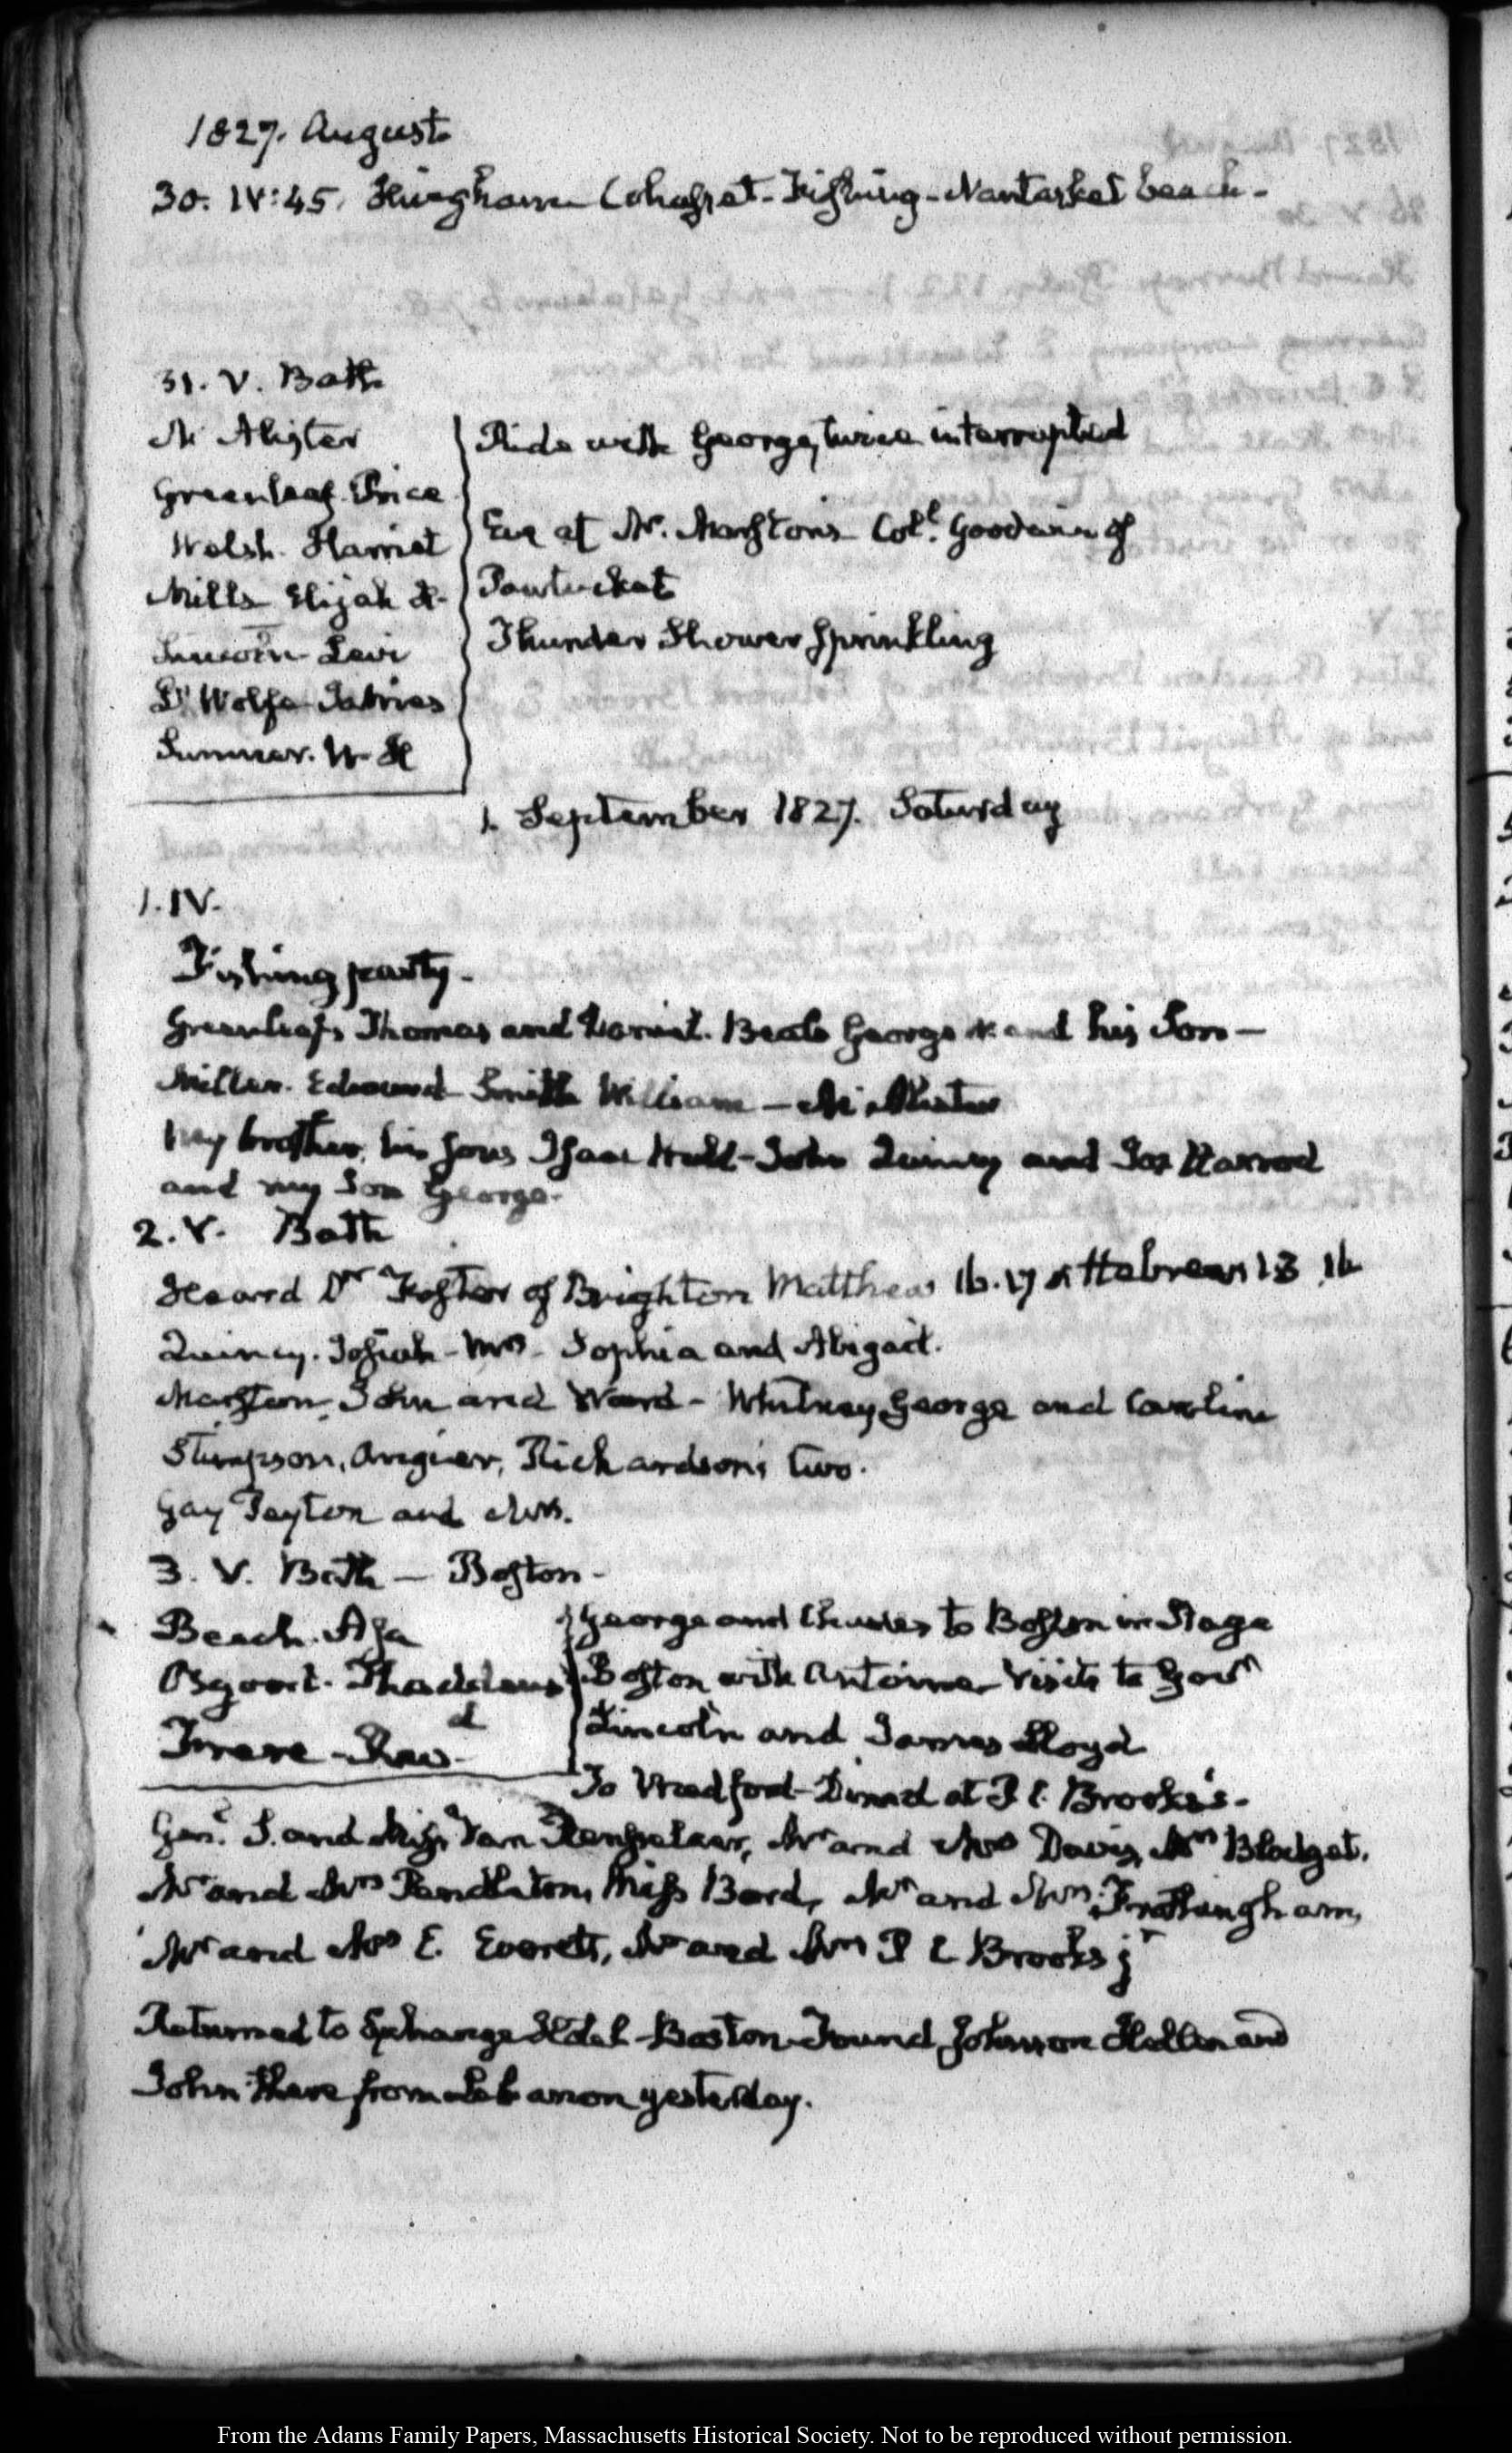 1827. August
30. IV:45. Hingham Cohasset - Fishing - Nantasket beach -
31. V. Bath
Mc Alister
Greenleaf. Price
Welsh. Harriet
Mills Elijah H.
Lincoln Levi
D'Wolfe James
Sumner. W. H
Ride with George, twice interrupted
Eve at Mr. Marston's Coll. Goodwin of
Pawtucket
Thunder Shower Sprinkling
1. September 1827. Saturday
1. IV.
Fishing party -
Greenleafs Thomas and Daniel. Beale George W. and his Son —
Miller. Edward Smith William — Mc Alister
My brother, his sons Isaac Hull - John Quincy and Jos Harrod
and my Son George.
2. V. Bath
Heard Dr Foster of Brighton Matthew 16. 17 & Hebrews 13 16
Quincy. Josiah - Mrs - Sophia and Abigail.
Marston, John and Ward - Whitney, George and Caroline
Stimpson, Angier, Richardson's two.
Gay Payton and Mrs.
3. V. Bath — Boston -
Beach. Asa
Osgood. Thaddeus
Frere - Revd
George and Charles to Boston in Stage
Boston with Antoine - Visits to Govr
Lincoln and James Lloyd
To Medford - Dined at P. C. Brooks's -
Genl. S. and Miss Van Rensselaer, Mr and Mrs Davis, Mrs Blodget.
Mr and Mrs Pendleton, Miss Bord, Mr and Mrs Frothingham,
Mr and Mrs E. Everett, Mr and Mrs P C Brooks jr
Returned to Exchange Hotel - Boston - Found Johnson Hellen and
John there from Lebanon yesterday.
From the Adams Family Papers, Massachusetts Historical Society. Not to be reproduced without permission.